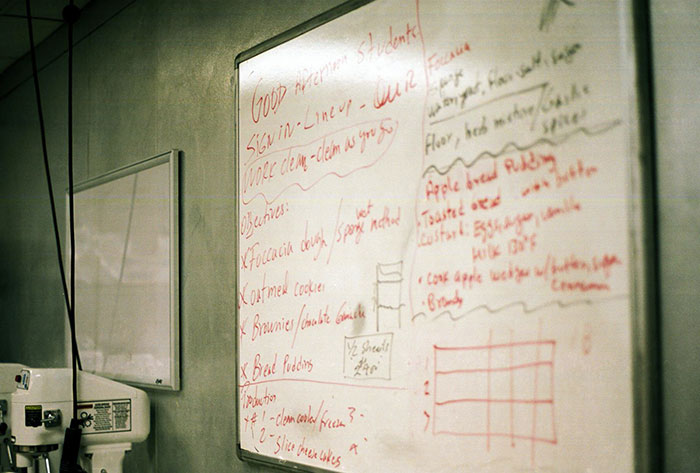 Good Afternoon Students
Sign in - Line up -
Work clean - clean as you go
Objectives:
x Foccacia dough / sponge method
wet
x oatmeal cookies
x Brownies / chocolate Ganache
x Bread Pudding
Production
# 1 - clean cooler / freezer 3 -
2 - Slice cheesecakes
1/2 Sheets
Foccacia
Sponge
water, yeast, flour, salt, sugar
Floor, herb mixture / Garlic
spices
Apple bread Pudding
• Toasted bread with butter
custard: Eggs, sugar, vanilla
Milk 130°F
• cook apple wedges w/ butter, sugar
Cinnamon
• Brandy
1
2
3